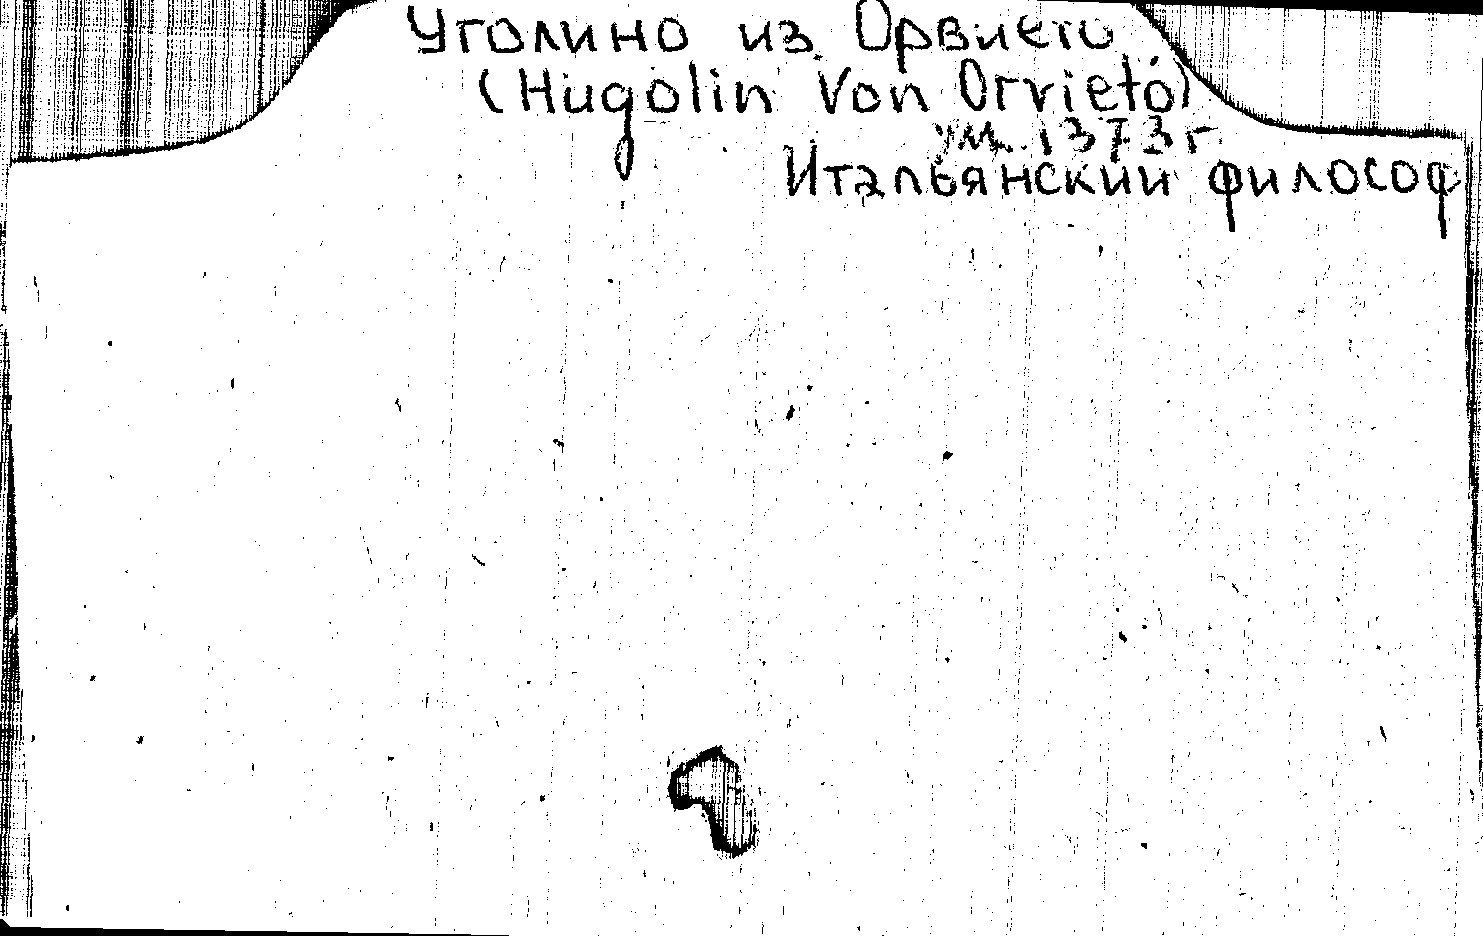 Уголино из Орвието
(Hugolin Von Orvieto)
ум. 1373 г.
Итальянский философ